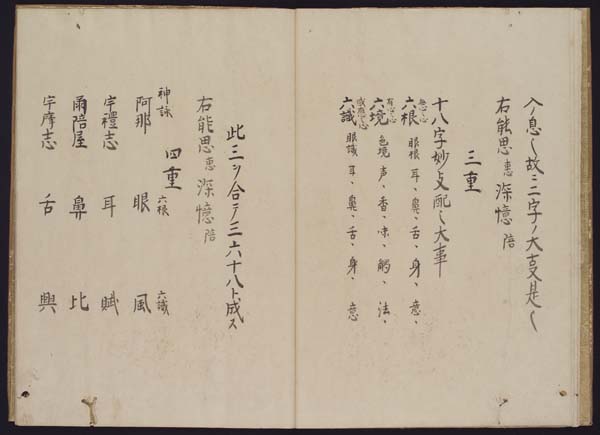 入ノ息也故ニ二字ノ大事是也
右能思惠深憶陪
三重
十八字妙文配也大事
六根 眼根 耳、鼻、舌、身、意、
六境 色境 声、香、味、觸、法、
六識 眼識 耳、鼻、舌、身、意
此三ツ合テ三六十八ト成ス
右能思惠深憶陪
四重
神詠 六根 六識
阿那 眼 風
宇禮志 耳 賦
爾陪屋 鼻 比
宇摩志 舌 興